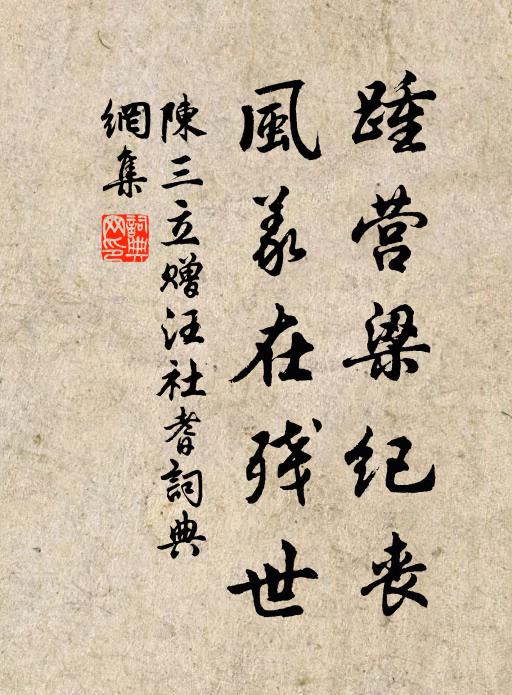 踵营梁纪丧
風義在殘世
陳三立赠汪社耆詞典
網集
詞典
网印